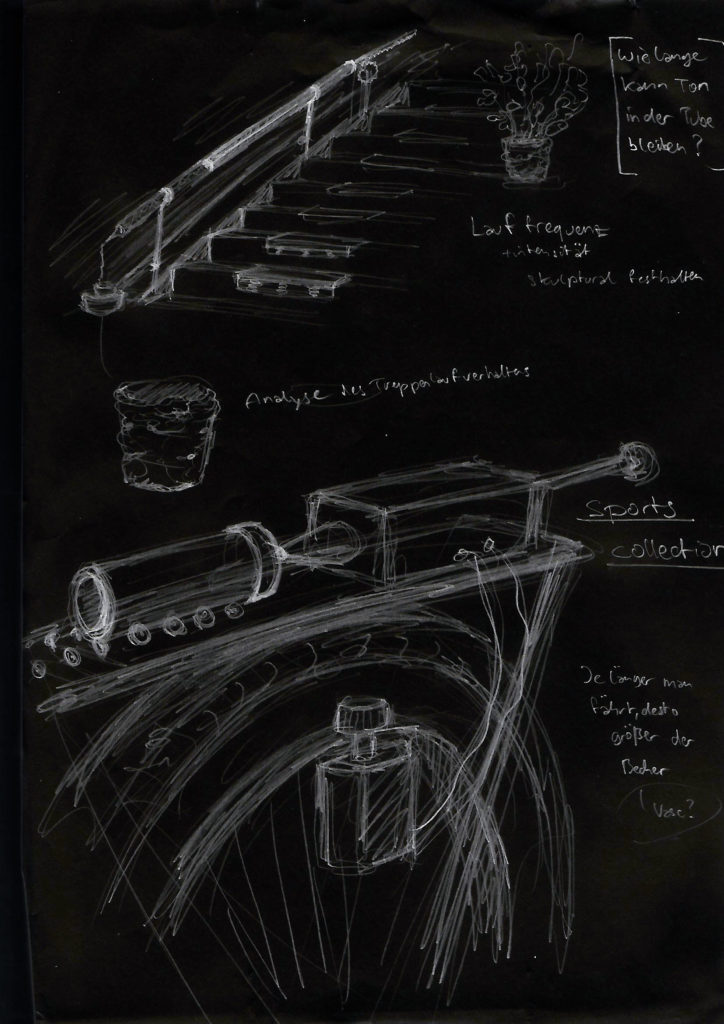 Wie lange
kann Ton
in der Tube
bleiben?
Lauffrequenz
+intensität
skulptural festhalten
Analyse des Treppenlaufverhaltens
sports
collection
Je länger man
fährt, desto
größer der
Becher
Vase?